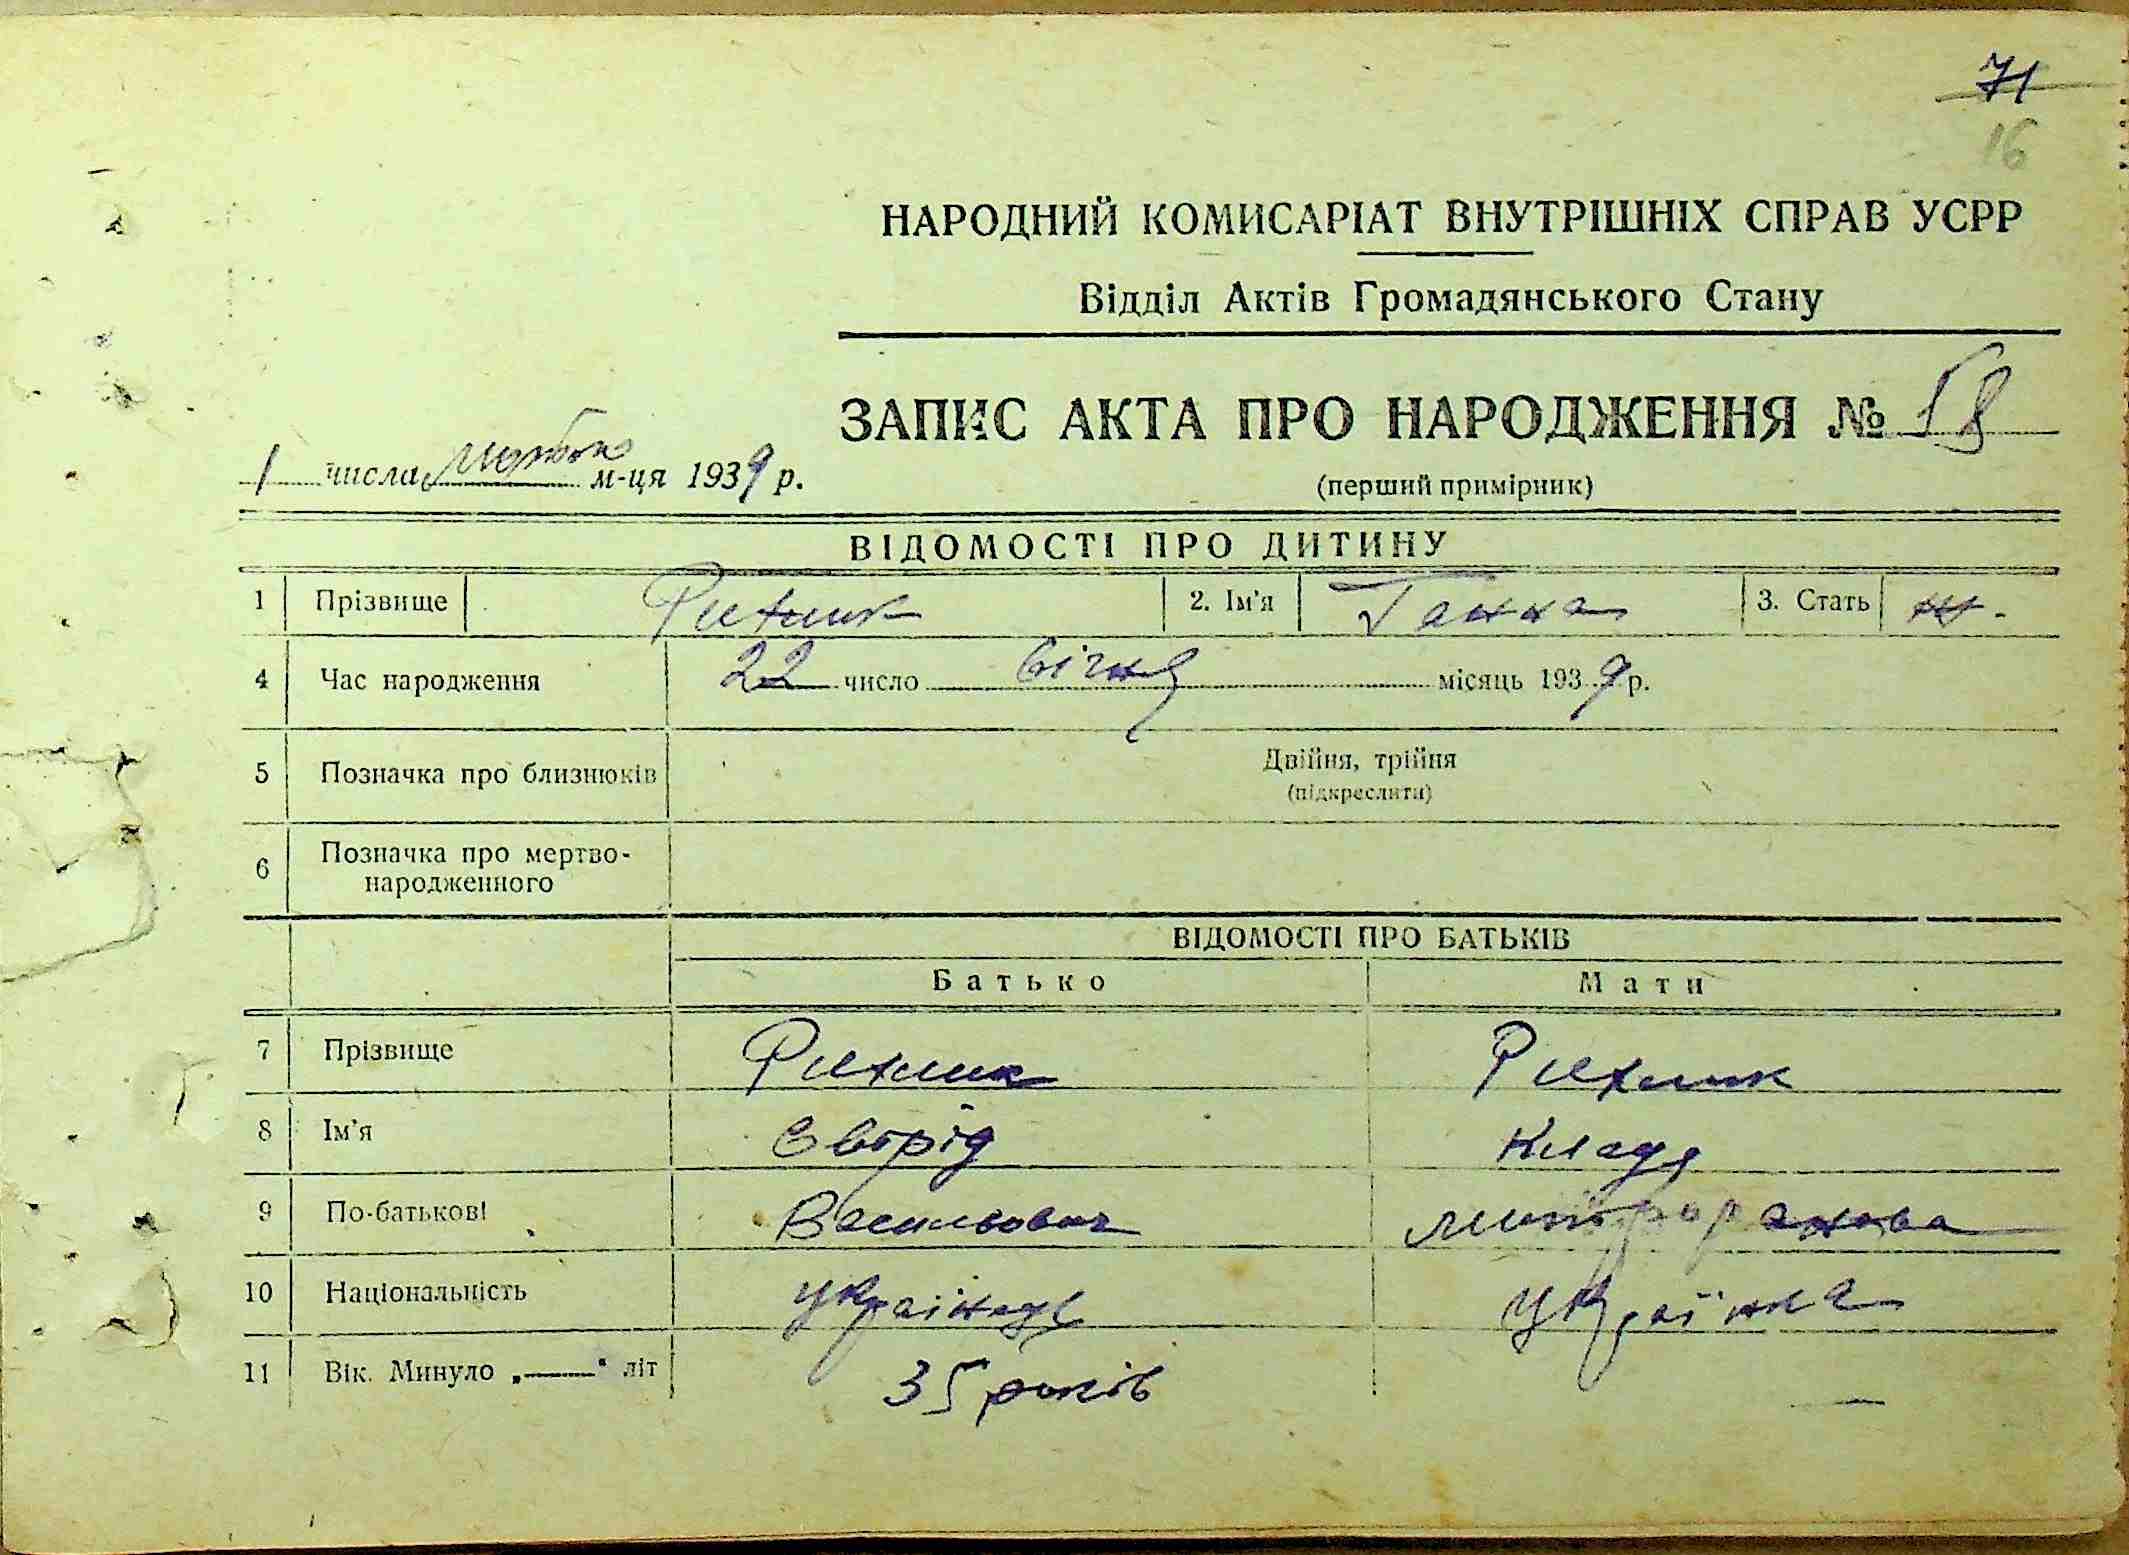 71
16
НАРОДНИЙ КОМИСАРІАТ ВНУТРІШНІХ СПРАВ УСРР
Відділ Актів Громадянського Стану
ЗАПИС АКТА ПРО НАРОДЖЕННЯ № 58
1 числа м-ця 1939 р.
(перший примірник)
ВІДОМОСТІ ПРО ДИТИНУ
1 Прізвище Рихлик 2. Ім'я Ганна 3. Стать ж.
4 Час народження 22 число січня місяць 1939 р.
5 Позначка про близнюків Двійня, трійня
(підкреслити)
6 Позначка про мертво-
народженного
ВІДОМОСТІ ПРО БАТЬКІВ
Батько Мати
7 Прізвище Рихлик Рихлик
8 Ім'я
9 По-батькові Васильович Митрофанова
10 Національність українець українка
11 Вік. Минуло „——" літ 35 років —